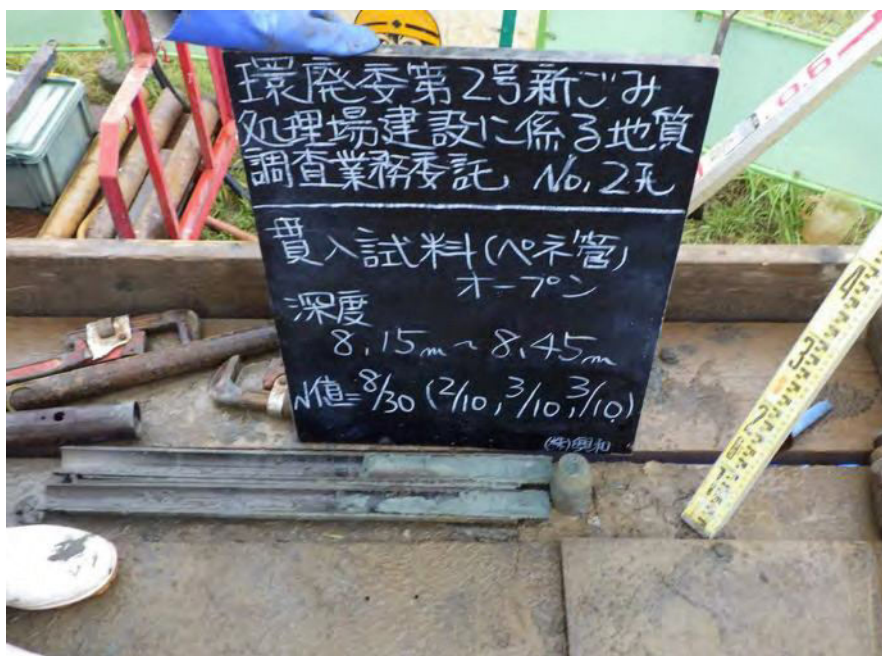 環廃委第2号新ごみ
処理場建設に係る地質
調査業務委託 No.2孔
貫入試料(ペネ管)
オープン
深度
8.15m~8.45m
N値=8/30 (2/10, 3/10, 3/10)
(株)興和
0.9
4
3
2
1